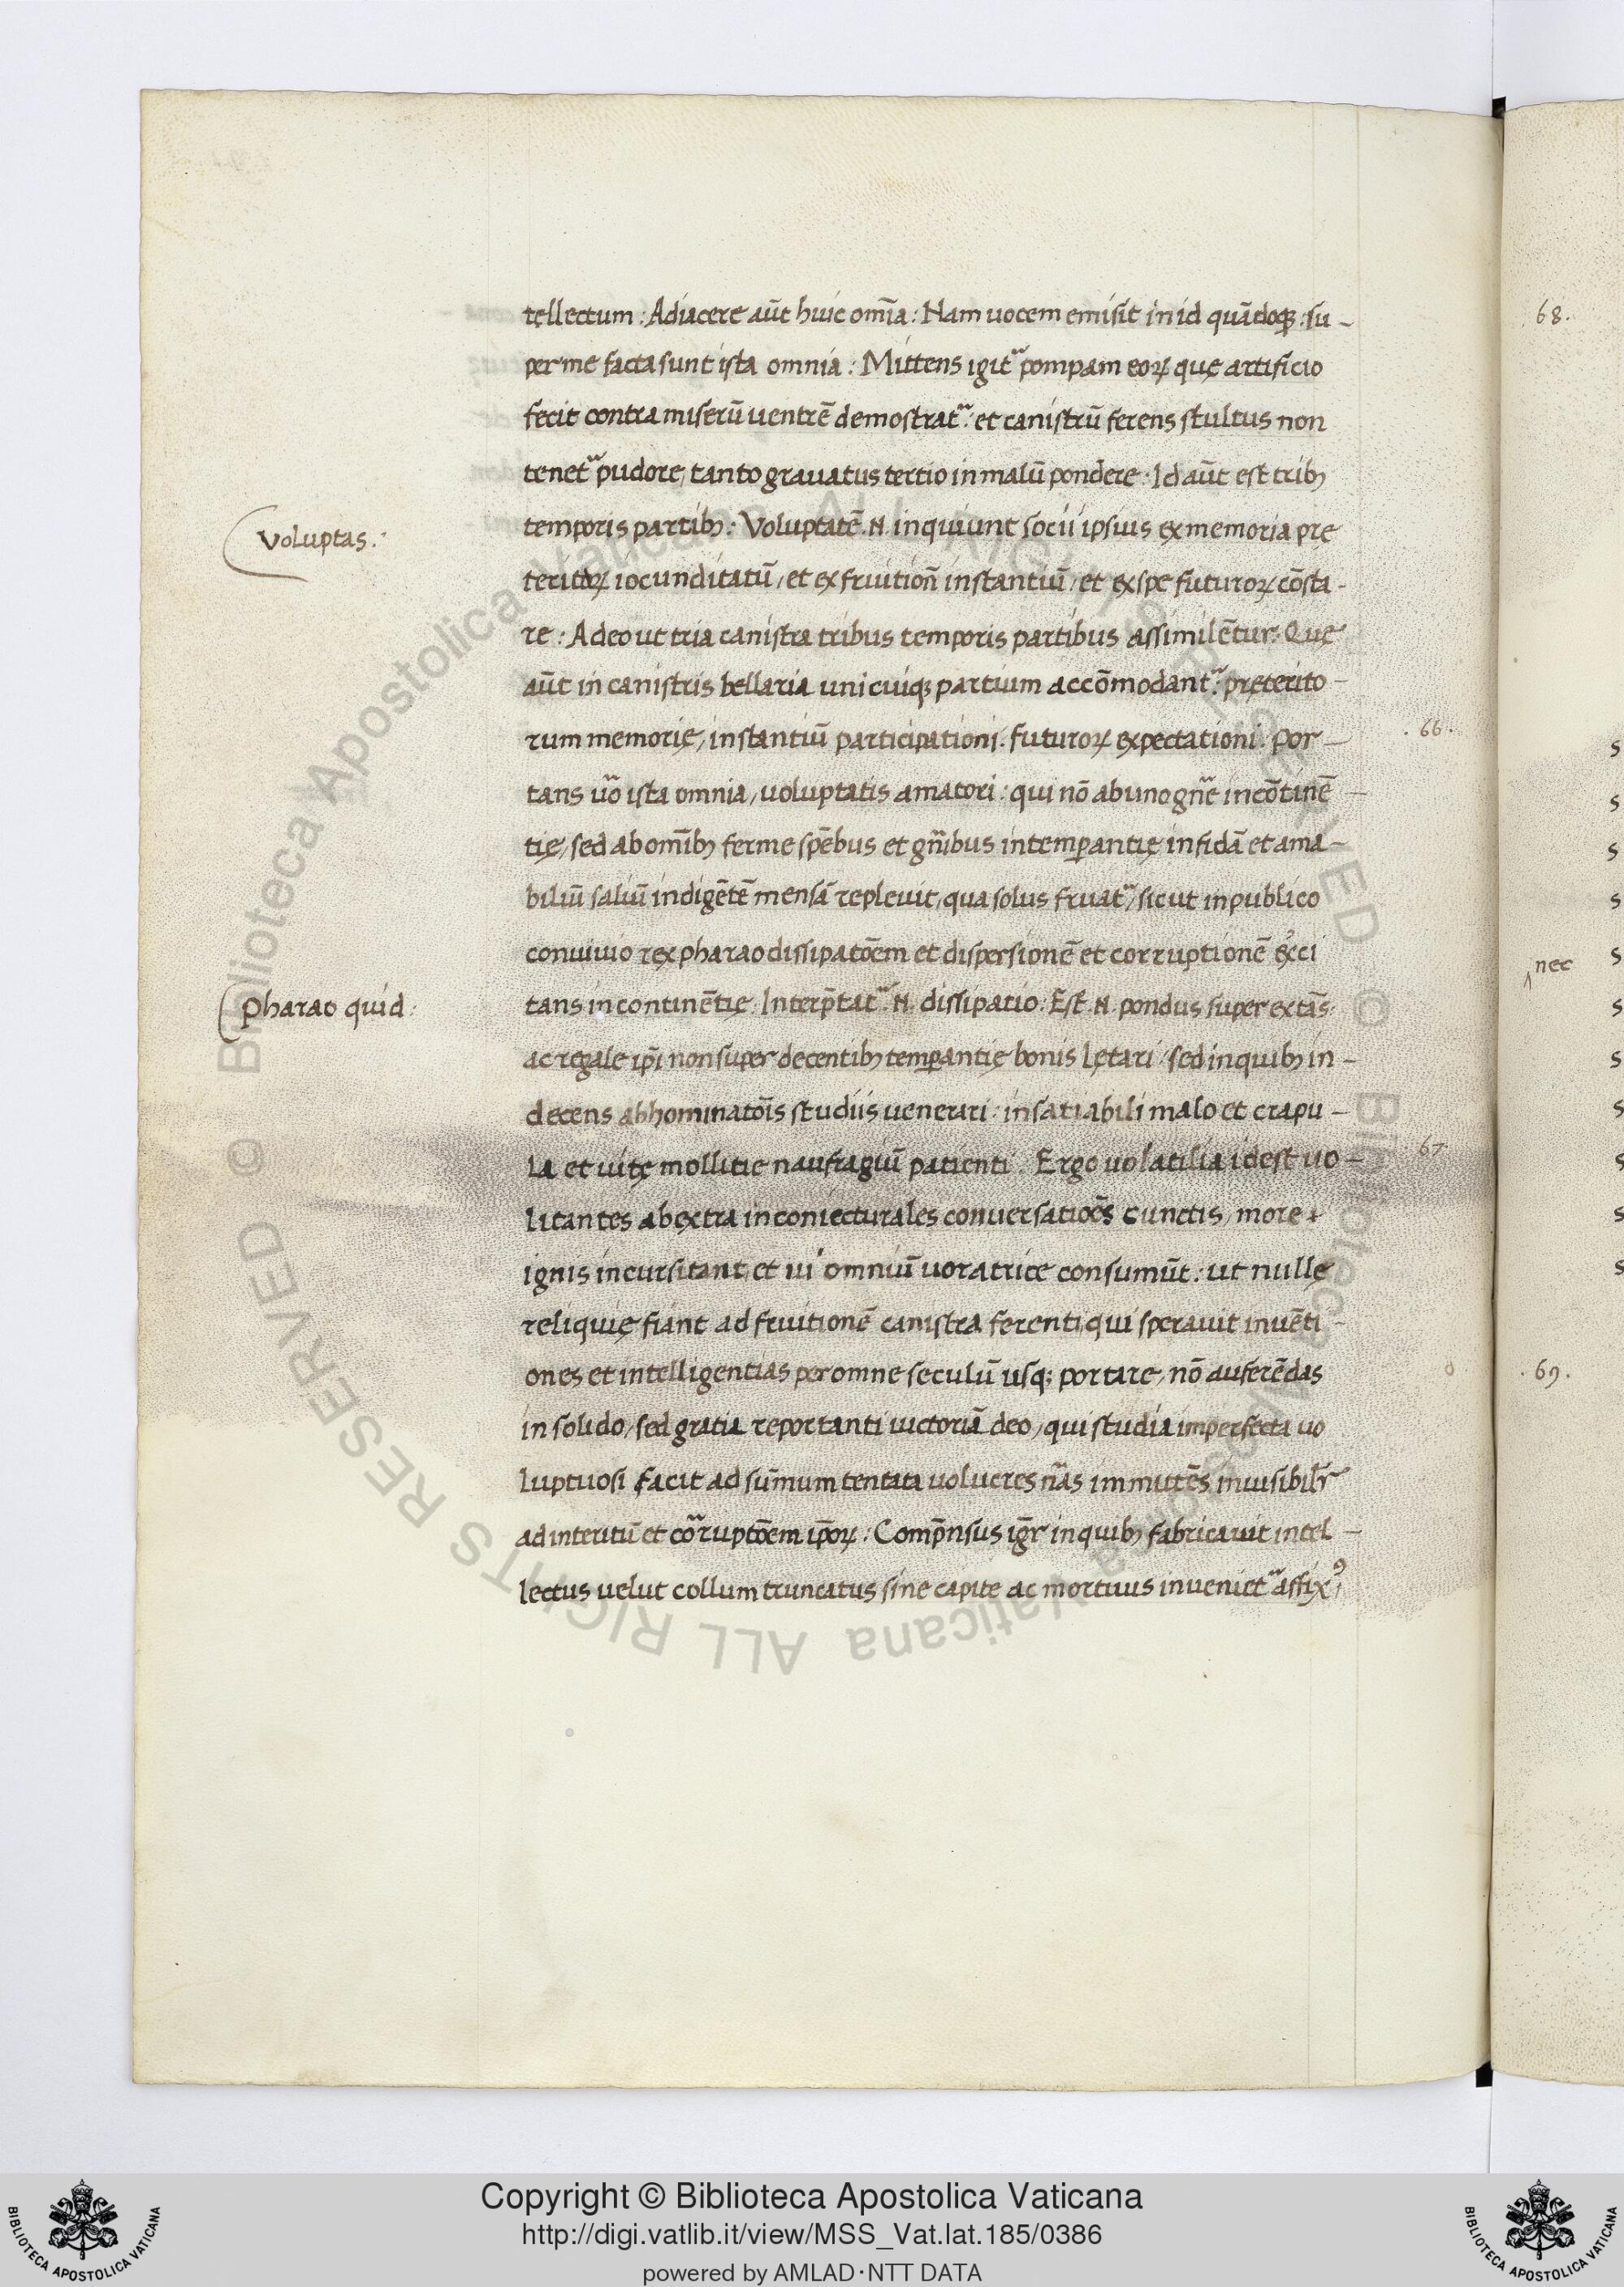 tellectum : Adiacere aūt huic om̄ia : Nam uocem emisit in id quādoqꝫ : su–
per me facta sunt ista omnia : Mittens igit᷑ pompam eoꝝ quę artificio
fecit contra miserū uentrē demostrat᷑ : et canistrū ferens stultus non
tenet᷑ pudore, tanto grauatus tertio in malū pondere : Id aūt est tribꝫ
temporis partibꝫ : Voluptatē .N. inquiunt socii ipsius ex memoria prę
Voluptas :
teritoꝝ iocunditatū, et ex fruitiōn instantiū, et ex spe futuroꝝ cōsta–
re : Adeo ut tria canistra tribus temporis partibus assimilētur. Quę
aūt in canistris bellaria unicuiqꝫ partium accōmodant᷑ : pręterito–
rum memorię, instantiū participationi. futuroꝝ expectationi. Por–
. 66 .
tans ūo ista omnia, uoluptatis amatori : qui nō ab uno gn̄e incōtinē–
tię, sed ab om̄ibꝫ ferme sp̄ebus et gn̄ibus intemꝑantię infidā et ama–
biliū saliū indigētē mensā repleuit, qua solus fruat᷑, sicut in publico
conuiuio rex pharao dissipatōem et dispersionē et corruptionē exci
tans incontinētię : Interp̄tat᷑ .N. dissipatio : Est .N. pondus super extās
Pharao quid :
ac regale ip̄i non super decentibꝫ temꝑantię bonis lętari : sed in quibꝫ in–
decens abhominatōis studiis uenerari : insatiabili malo et crapu–
la et uitę mollitie naufragiū patienti. Ergo uolatilia idest uo–
67
litantes ab extra in coniecturales conuersatiōes cunctis, more
ignis incursitant, et ui omniū uoratrice consumūt : ut nullę
reliquię fiant ad fruitionē canistra ferenti, qui sperauit inuēti–
ones et intelligentias per omne seculū usqꝫ portare, nō auferēdas
in solido, sed gratia reportanti uictoriā deo, qui studia imperfecta uo
luptuosi facit ad sūmum tentata uolucres n̄as immutēs inuisibil̄r
ad interitū et corruptōem ip̄oꝝ : Comp̄nsus igr̄ in quibꝫ fabricauit intel–
lectus uelut collum truncatus sine capite ac mortuus inueniet᷑ affixꝰ,
68.
nec
. 69 .
Copyright © Biblioteca Apostolica Vaticana
http://digi.vatlib.it/view/MSS_Vat.lat.185/0386
powered by AMLAD·NTT DATA
BIBLIOTECA APOSTOLICA VATICANA
BIBLIOTECA APOSTOLICA VATICANA
Biblioteca Apostolica Vaticana ALL RIGHTS RESERVED © Biblioteca Apostolica Vaticana ALL RIGHTS RESERVED ©